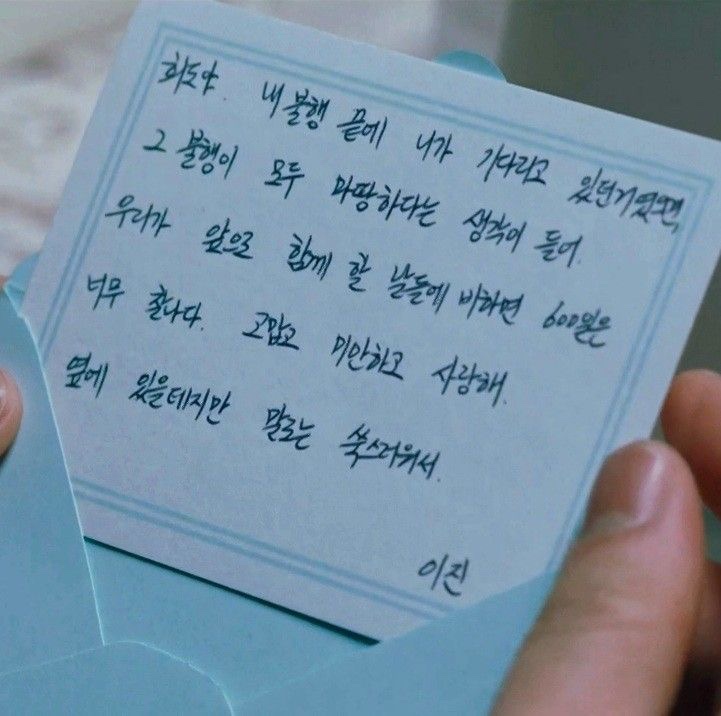 희도야. 내 불행 끝에 니가 기다리고 있던거였으면,
그 불행이 모두 마땅하다는 생각이 들어.
우리가 앞으로 함께 할 날들에 비하면 600일은
너무 찰나다. 고맙고 미안하고 사랑해.
옆에 있을테지만 말로는 쑥스러워서.
이진